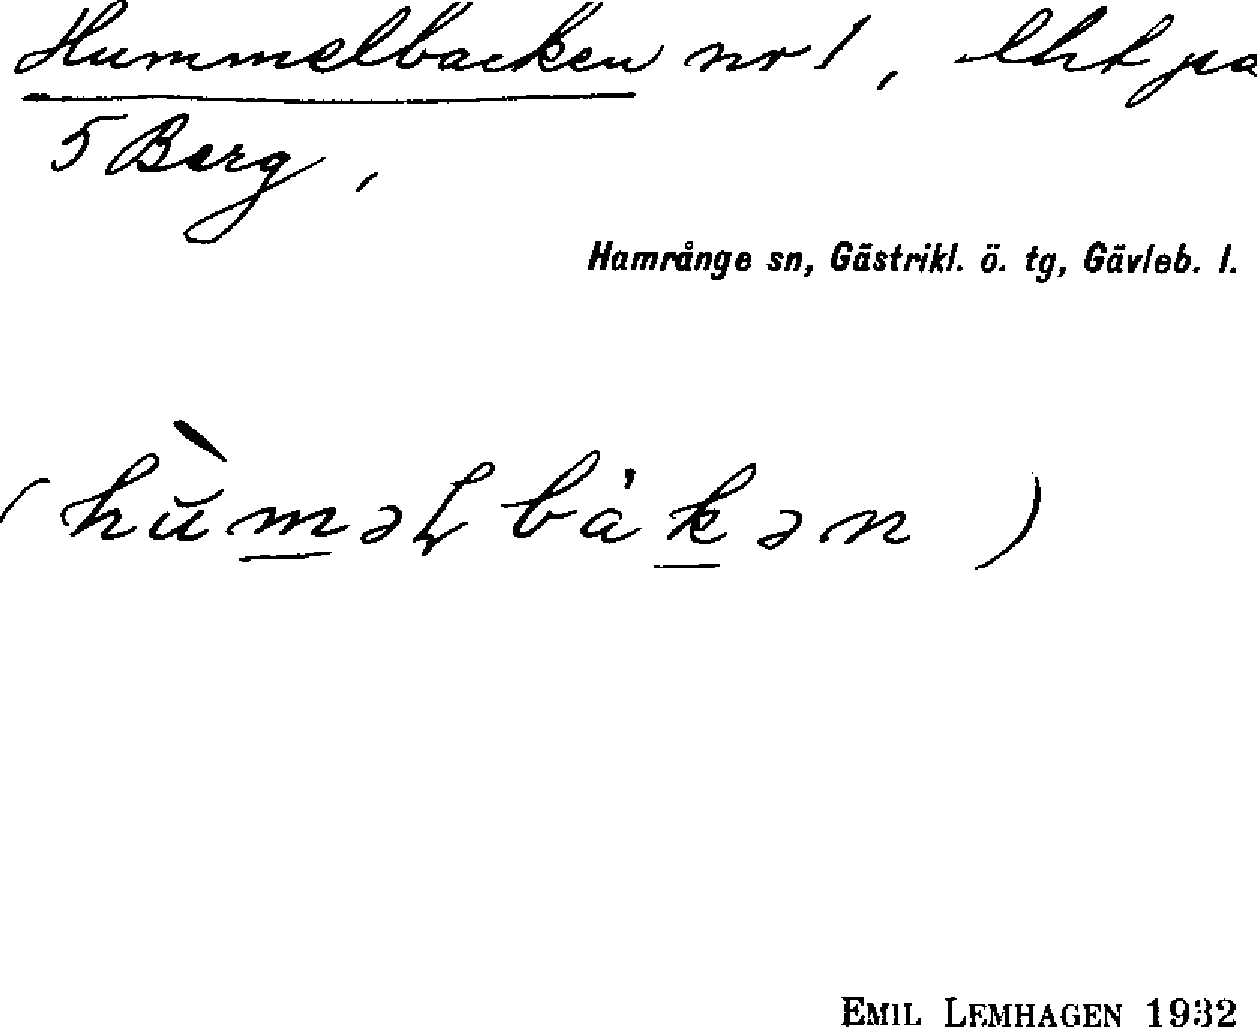 Hummelbacken nr 1, lht på
5 Berg,
Hamrånge sn, Gästrikl. ö. tg, Gävleb. l.
(hùməɭbàkən)
EMIL LEMHAGEN 1932